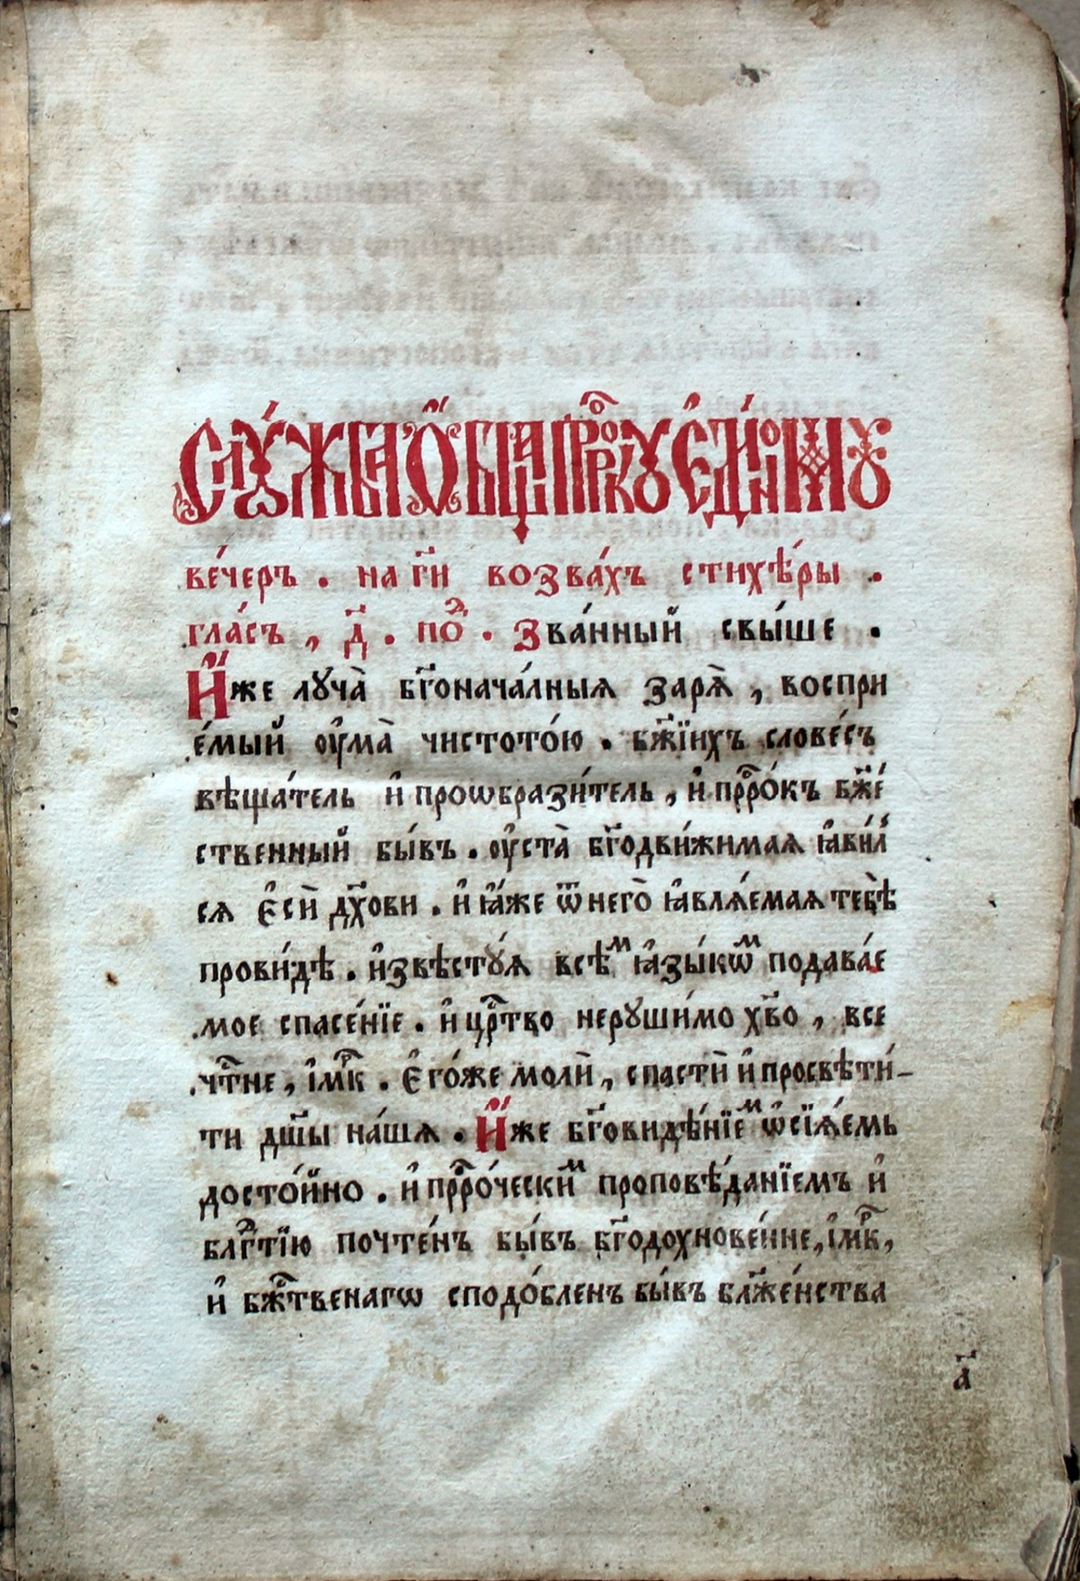 Слꙋ́жба ѻ҆́бщаѧ прⷪ҇ркꙋ є҆ди́номꙋ
ве́черъ . на гⷭ҇и возва́хъ стихѣ́ры .
гла́съ , д҃ . поⷣ . Зва́нный свы́ше .
И҆́же лꙋча̀ бг҃онача́лныѧ зарѧ̀ , воспри
е́мый ᲂу҆ма̀ чистото́ю . бж҃їихъ слове́съ
вѣща́тель и҆ проѡбрази́тель , и҆ прⷪ҇ро́къ бж҃е́
ственный бы́въ . ᲂу҆ста̀ бг҃одви́жимаѧ ꙗ҆ви́л
сѧ є҆сѝ дх҃ови . и҆ ꙗ҆́же ѿ него̀ ꙗ҆влѧ́емаѧ тебѣ̀
прови́дѣ . и҆звѣстꙋ́ѧ всѣⷨ ꙗ҆зы́кѡⷨ подава́е
мое спасе́нїе . и҆ црⷭ҇тво нерꙋши́мо хв҃о , все
чтⷭ҇не , і҆мⷬ҇к . є҆го́же молѝ , спастѝ и҆ просвѣти́
ти дш҃ы на́шѧ . И҆́же бг҃овидѣ́нїеⷨ ѡ҆сїѧ́емь
досто́йно . и҆ прⷪ҇ро́ческиⷨ проповѣ́данїемъ и҆
блгⷣтїю почте́нъ бы́въ бг҃одохнове́нне , і҆мⷬ҇к ,
и҆ бжⷭ҇твенагѡ сподо́бленъ бы́въ блж҃е́нства
а҃